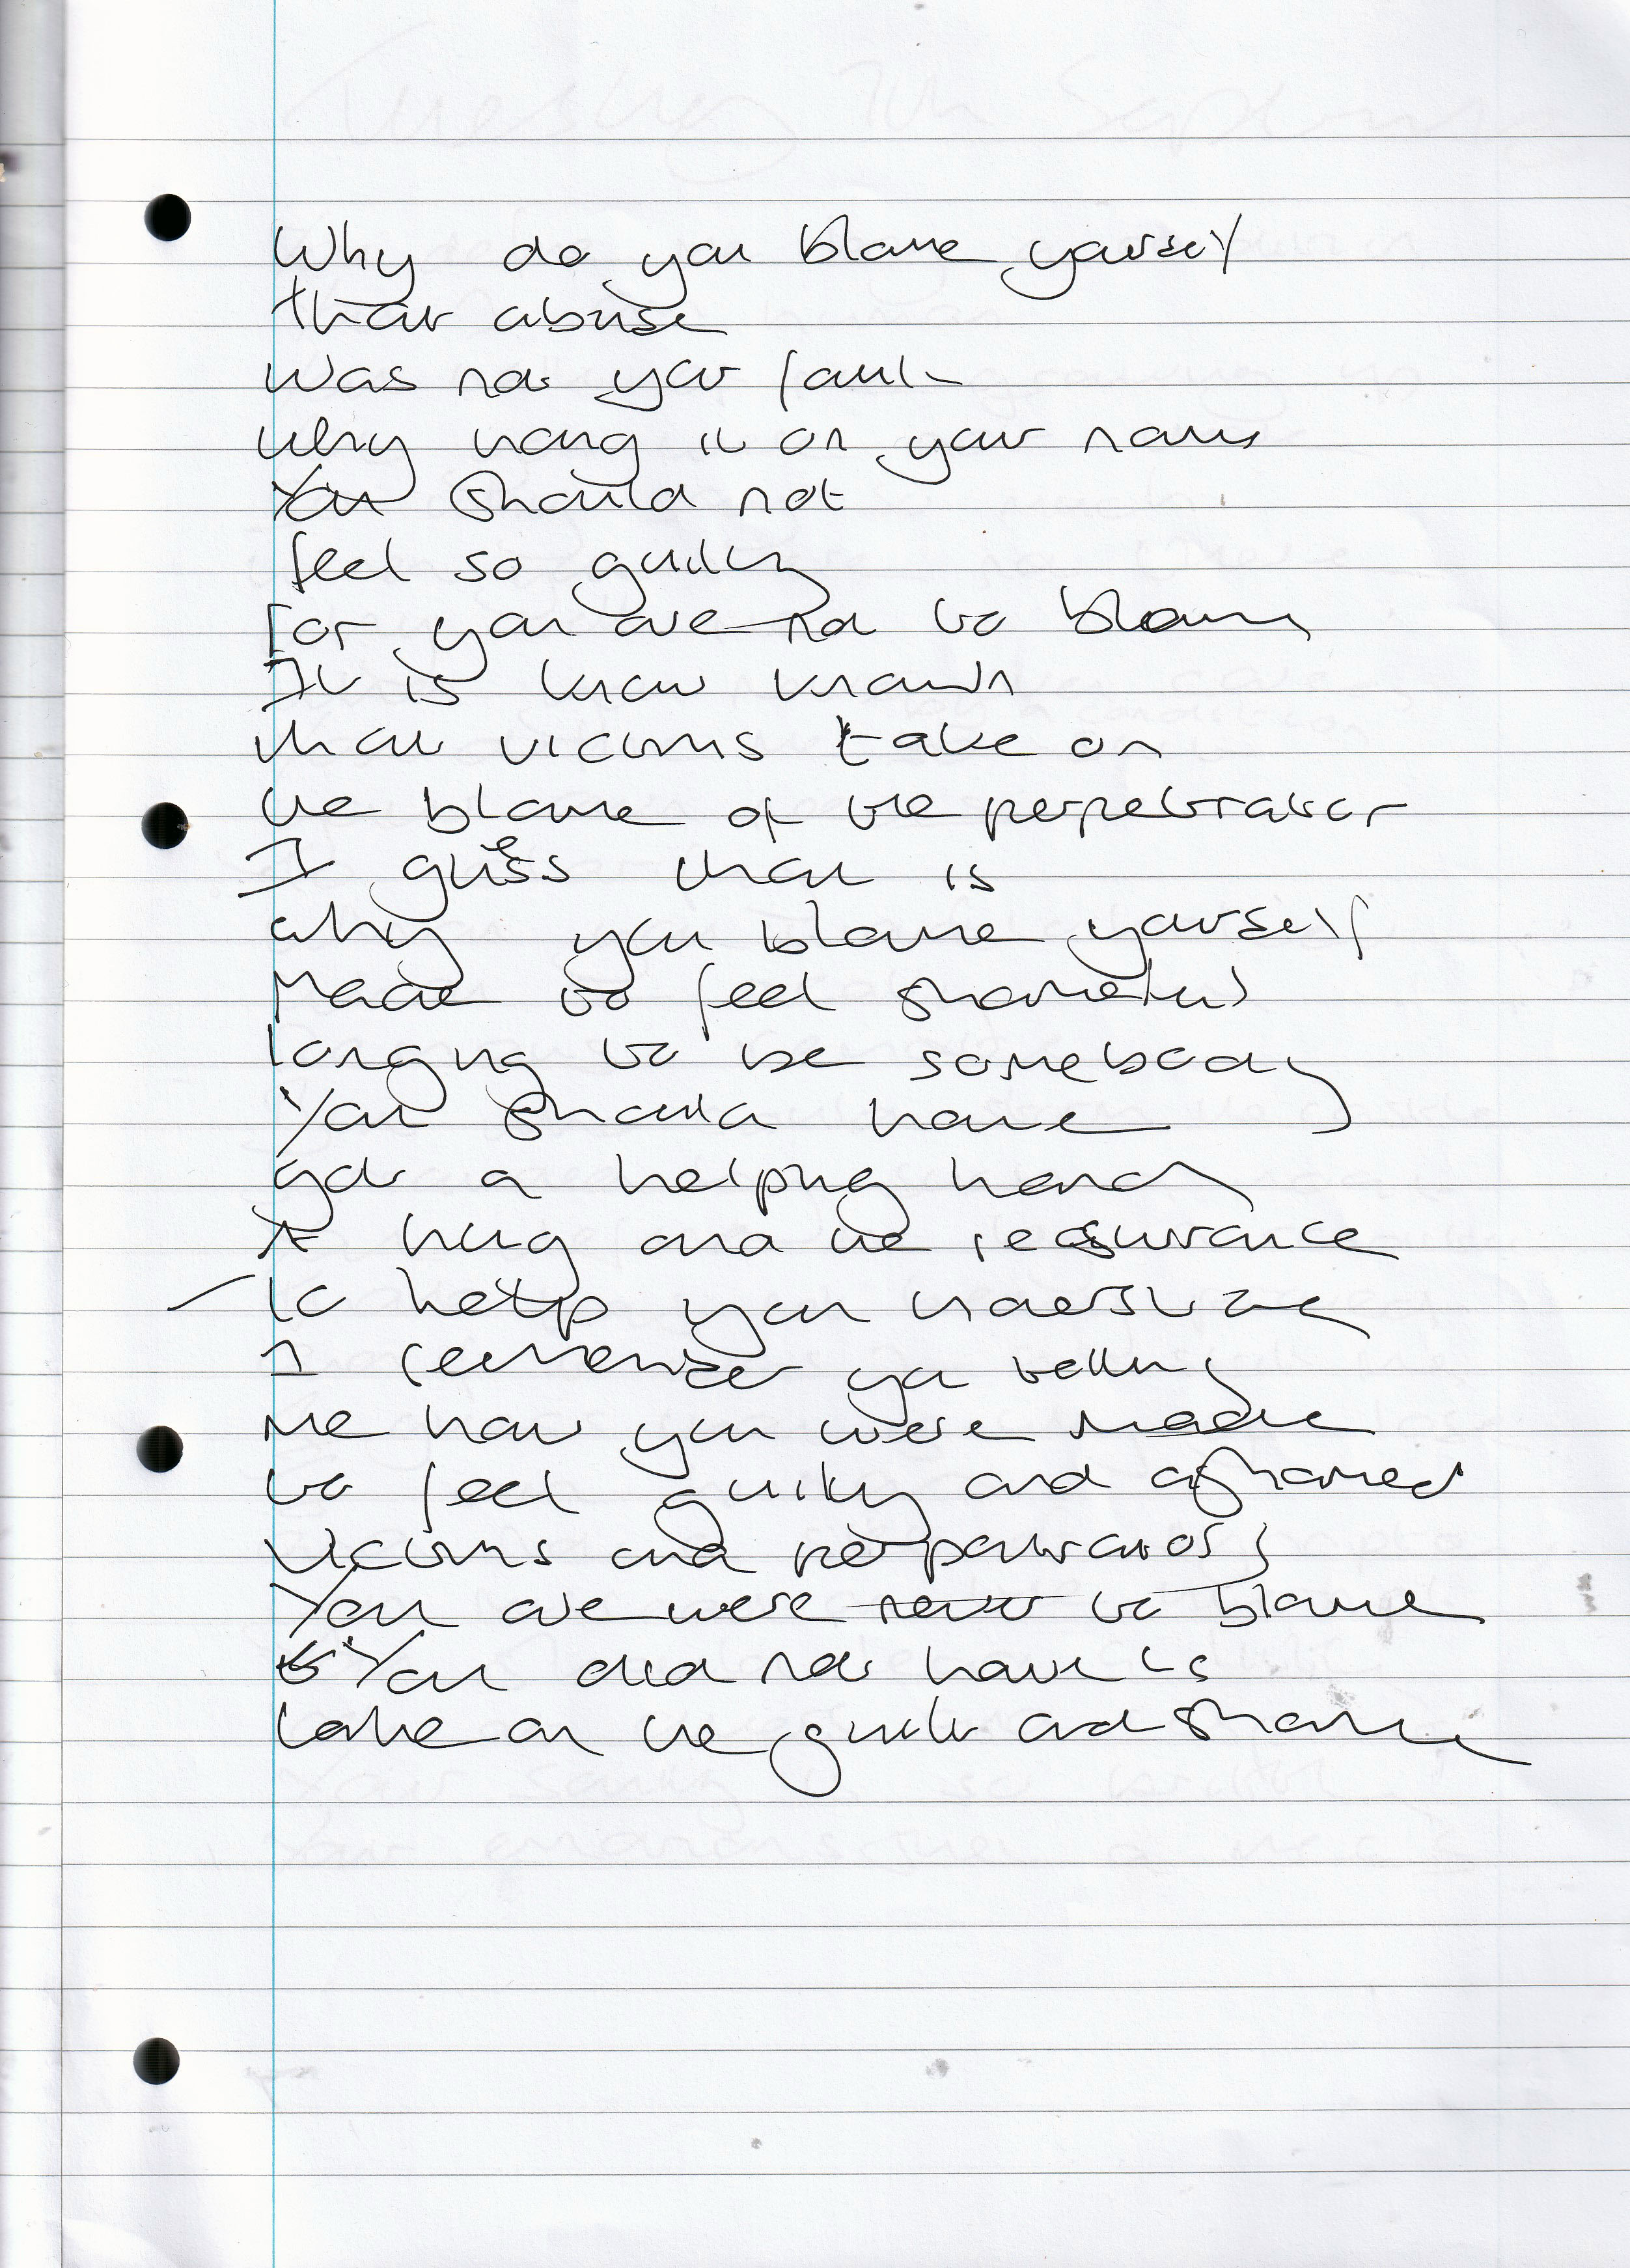 Why do you blame yourself
that abuse
Was not your fault
Why hang it on your name
You should not
feel so guilty
For you are not to blame
It is know known
that victims take on
the blame of the perpetrator
I guess that is
why you blame yourself
Made to feel shameful
longing to be somebody
You should have
got a helping hand
A hug and the reassurance
To help you
I remember you telling
me how you were made
to feel guilty and ashamed
victims and
You are were never to blame
You did not have to
take on the guilt and shame